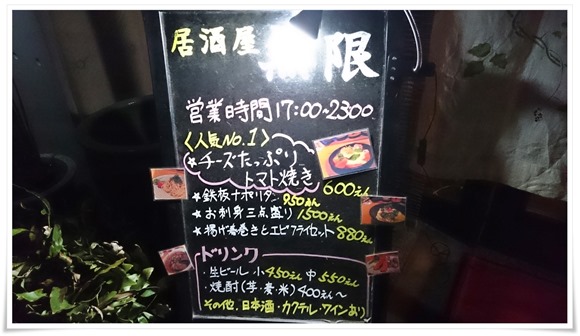 居酒屋 無限
営業時間 17:00~23:00
〈人気No.1〉
★チーズたっぷり
トマト焼き 600えん
★鉄板ナポリタン 950えん
★お刺身三点盛り 1500えん
★揚げ春巻きとエビフライセット 880えん
ドリンク
・生ビール 小450えん 中550えん
・焼酎(芋・麦・米)400えん~
その他、日本酒・カクテル・ワインあり